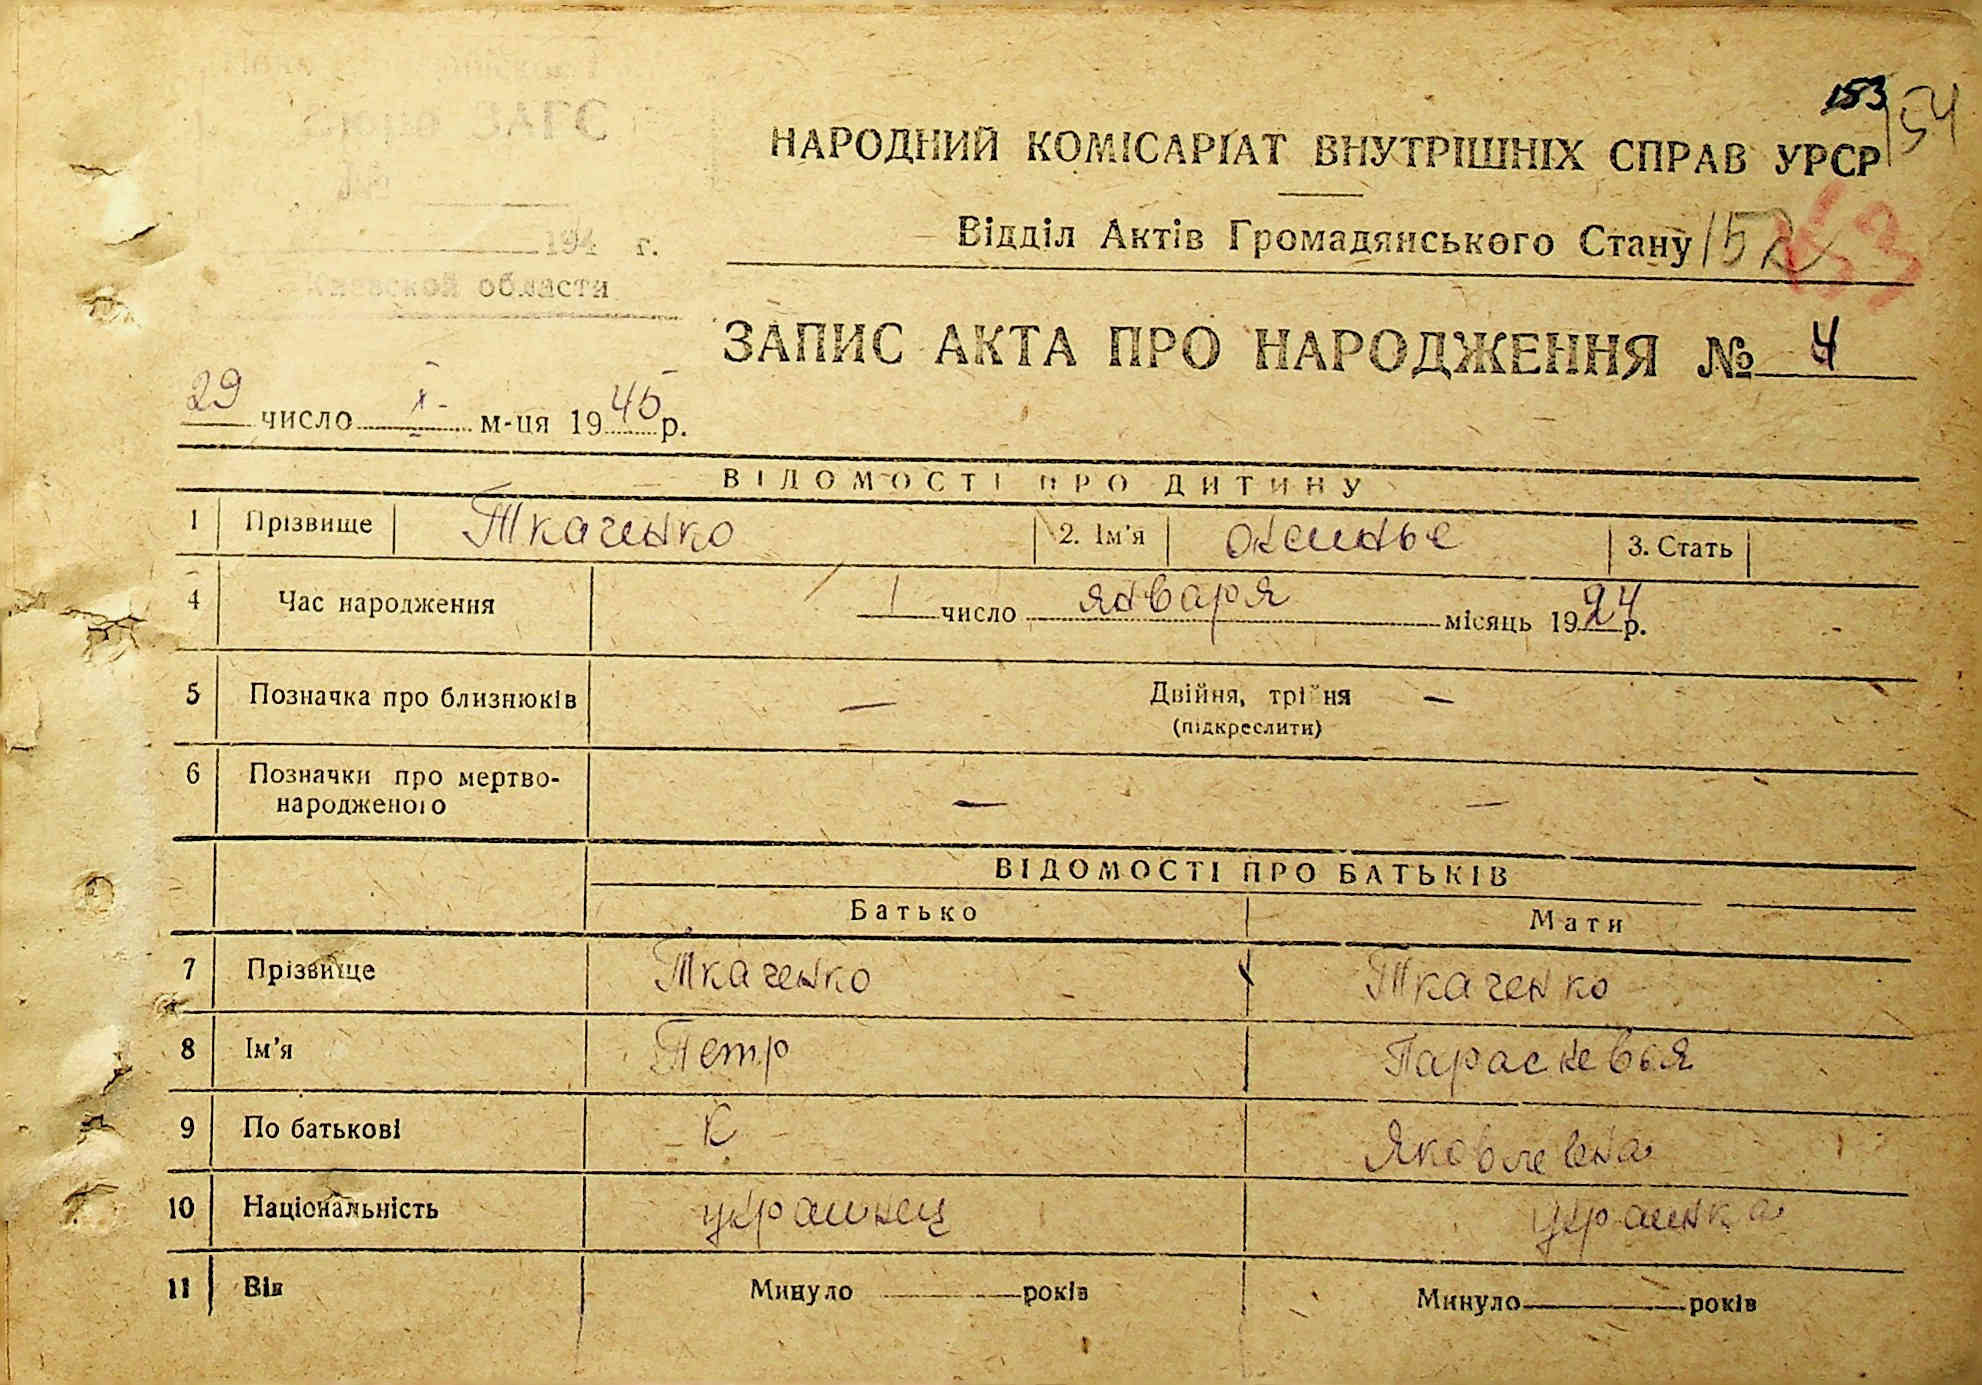 153
154
НАРОДНИЙ КОМІСАРІАТ ВНУТРІШНІХ СПРАВ УРСР
Відділ Актів Громадянського Стану 152 153
ЗАГС
194 г.
Киевской области
ЗАПИС АКТА ПРО НАРОДЖЕННЯ № 4
29 число X м-ця 1945 р.
ВІДОМОСТІ ПРО ДИТИНУ
1 Прізвище Ткаченко 2. Ім'я 3. Стать
4 Час народження 1 число января місяць 1924 р.
5 Позначка про близнюків — Двійня, трійня —
(підкреслити)
6 Позначки про мертво-
народженого — —
ВІДОМОСТІ ПРО БАТЬКІВ
Батько Мати
7 Прізвище Ткаченко Ткаченко
8 Ім'я Петр Параскевья
9 По батькові К Яковлевна
10 Національність украинец украинка
11 Вік Минуло років Минуло років